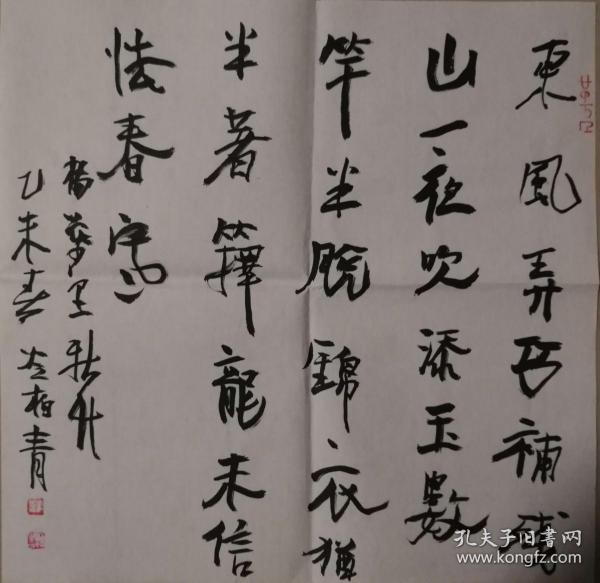 東風弄巧補殘
山一夜吹添玉數
竿半脫錦衣猶
半著籜龍未信
怯春寒
楊萬里新竹
乙未春柏青
孔夫子旧书网
www.kongfz.com